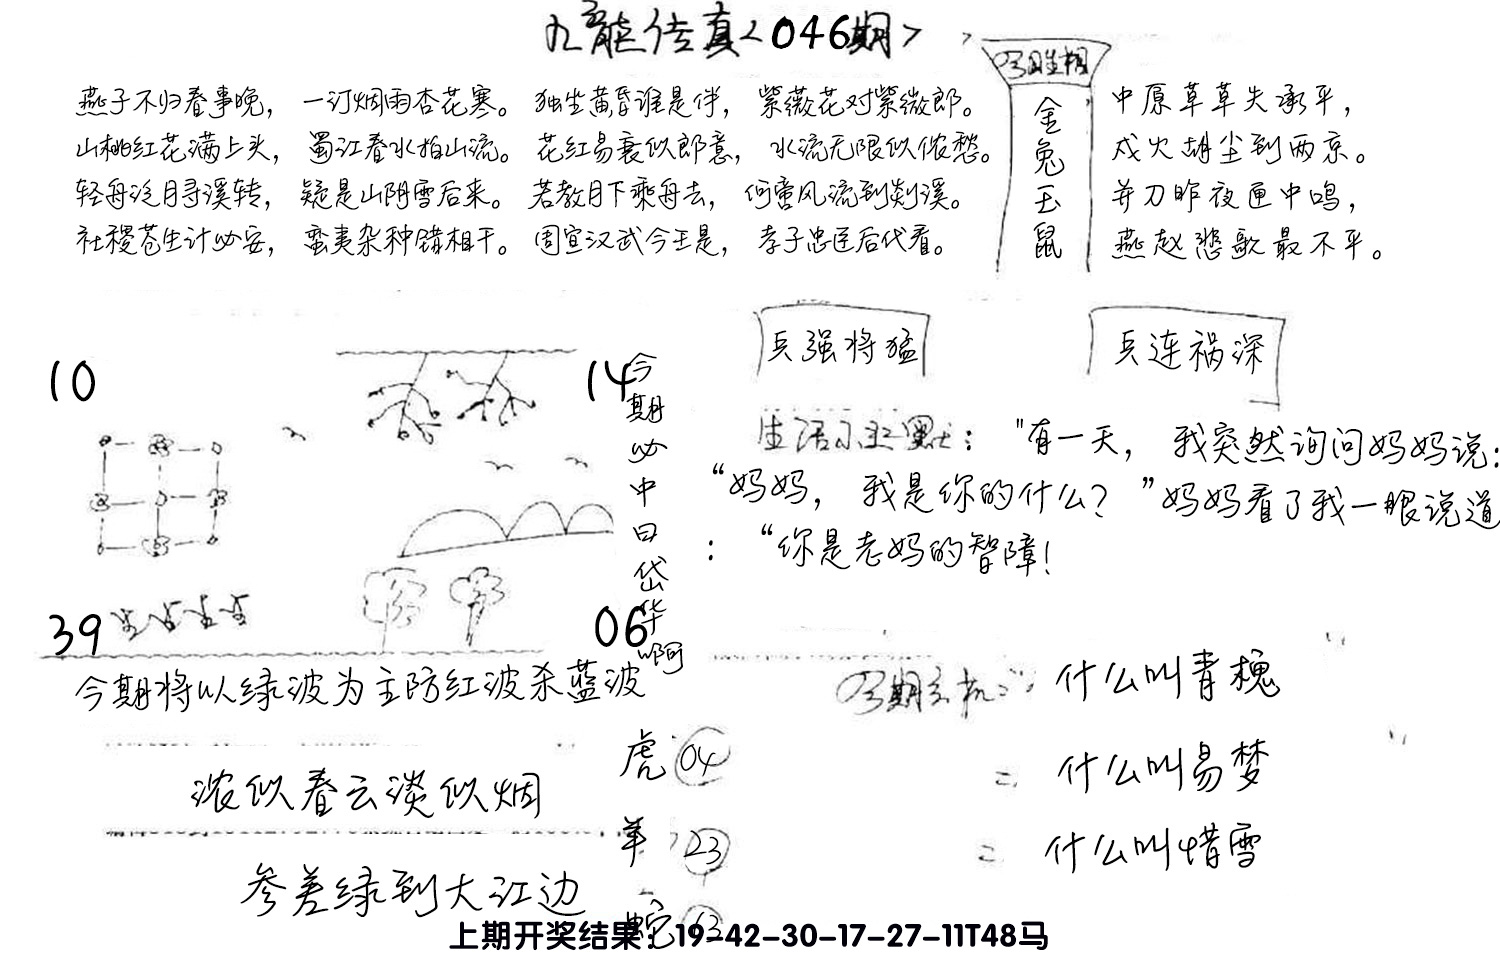 九龙传真<046期>
燕子不归春事晚，一汀烟雨杏花寒。独坐黄昏谁是伴，紫薇花对紫微郎。
山桃红花满上头，蜀江春水拍山流。花红易衰似郎意，水流无限似侬愁。
轻舟泛月寻溪转，疑是山阴雪后来。若教月下乘舟去，何啻风流到剡溪。
社稷苍生计必安，蛮夷杂种错相干。周宣汉武今王是，孝子忠臣后代看。
金兔玉鼠
中原草草失承平，
戍火胡尘到两京。
并刀昨夜匣中鸣，
燕赵悲歌最不平。
兵强将猛
兵连祸深
10
14
39
06
今期必中曰岱华啊
生活小幽默："有一天，我突然询问妈妈说：
“妈妈，我是你的什么？”妈妈看了我一眼说道
：“你是老妈的智障！
今期将以绿波为主防红波杀蓝波
浓似春云淡似烟
参差绿到大江边
虎 04
羊 23
蛇
今期玄机：什么叫青槐
= 什么叫易梦
= 什么叫惜雪
上期开奖结果：19-42-30-17-27-11T48马